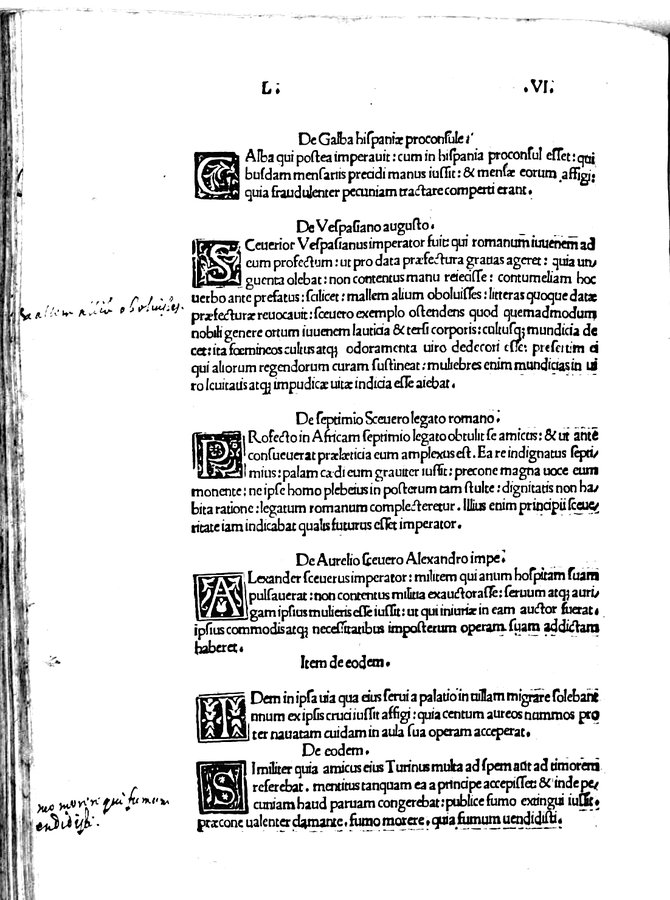 L. .VI.
De Galba hiſpaniæ proconſule.
GAlba qui poſtea imperauit: cum in hiſpania proconſul eſſet: qui
buſdam menſariis precidi manus iuſſit: & menſæ eorum affigi:
quia fraudulenter pecuniam tractare comperti erant.
De Veſpaſiano auguſto.
SCeuerior Veſpaſianus imperator fuit: qui romanum iuuenem ad
eum profectum: ut pro data præfectura gratias ageret: quia un/
guenta olebat: non contentus manu reieciſſe: contumeliam hoc
uerbo ante prefatus: ſcilicet: mallem alium oboluiſſes: litteras quoque datæ
mallem alliũ oboluiſſes.
præfecturæ reuocauit: ſceuero exemplo oſtendens quod quemadmodum
nobili genere ortum iuuenem lauticia & terſi corporis: cultuſq; mundicia de
cet: ita fœmineos cultus atq; odoramenta uiro dedecori eſſe: preſertim ei
qui aliorum regendorum curam ſuſtineat: muliebres enim mundicias in ui
ro leuitatis atq; impudicæ uitæ indicia eſſe aiebat.
De ſeptimio Sceuero legato romano.
PRofecto in Africam ſeptimio legato obtulit ſe amicus: & ut ante
conſueuerat præ læticia eum amplexus eſt. Ea re indignatus ſepti/
mius: palam cædi eum grauiter iuſſit: precone magna uoce eum
monente: ne ipſe homo plebeius in poſterum tam ſtulte: dignitatis non ha/
bita ratione: legatum romanum complecteretur. Illius enim principii ſceue/
ritate iam indicabat qualis futurus eſſet imperator.
De Aurelio ſceuero Alexandro impe.
ALexander ſceuerus imperator: militem qui anum hoſpitam ſuam
pulſauerat: non contentus militia exauctoraſſe: ſeruum atq; auri/
gam ipſius mulieris eſſe iuſſit: ut qui iniuriæ in eam auctor fuerat.
ipſius commodis atq; neceſſitatibus impoſterum operam ſuam addictam
haberet.
Item de eodem.
IDem in ipſa uia qua eius ſerui a palatio in uillam migrare ſolebant
unum ex ipſis cruci iuſſit affigi: quia centum aureos nummos pro
ter nauatam cuidam in aula ſua operam acceperat.
De eodem.
SImiliter quia amicus eius Turinus multa ad ſpem aut ad timorem
referebat. mentitus tanquam ea a principe accepiſſet: & inde pe/
cuniam haud paruam congerebat: publice fumo extingui iuſſit.
mo moriri qui fumum
præcone ualenter clamante. fumo morere, quia fumum uendidiſti.
endidiſti.